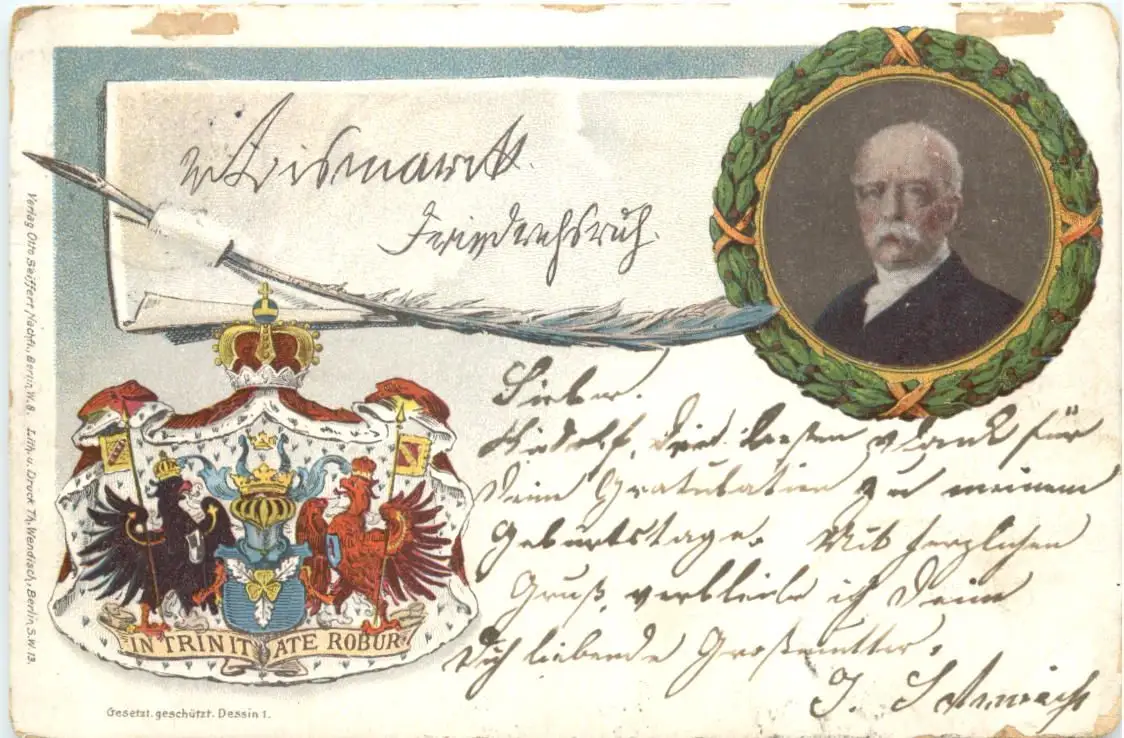 v Bismarck.
Friedrichsruh.
Lieber.
Rudolf, besten Dank für
Deine Gratulation zu meinem
Geburtstage. Mit herzlichem
Gruß, verbleibe ich Deine
Dich liebende Großmutter.
J.
IN TRINITATE ROBUR
Gesetzl. geschützt. Dessin 1.
Verlag Otto Seiffert Nachfl., Berlin W. 8. Lith. u. Druck Th. Wendisch, Berlin S.W. 13.